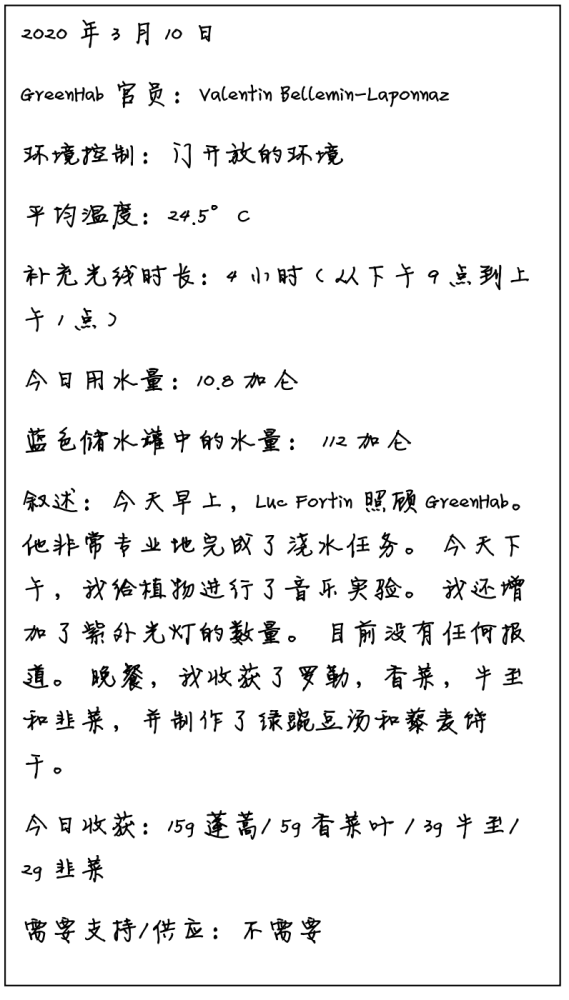 2020 年 3 月 10 日
GreenHab 官员：Valentin Bellemin-Laponnaz
环境控制：门开放的环境
平均温度：24.5° C
补充光线时长：4 小时（从下午 9 点到上
午 1 点）
今日用水量：10.8 加仑
蓝色储水罐中的水量： 112 加仑
叙述：今天早上，Luc Fortin 照顾 GreenHab。
他非常专业地完成了浇水任务。 今天下
午，我给植物进行了音乐实验。 我还增
加了紫外光灯的数量。 目前没有任何报
道。 晚餐，我收获了罗勒，香菜，牛至
和韭菜，并制作了绿豌豆汤和藜麦饼
干。
今日收获：15g 蓬蒿/ 5g 香菜叶 / 3g 牛至/
2g 韭菜
需要支持/供应： 不需要